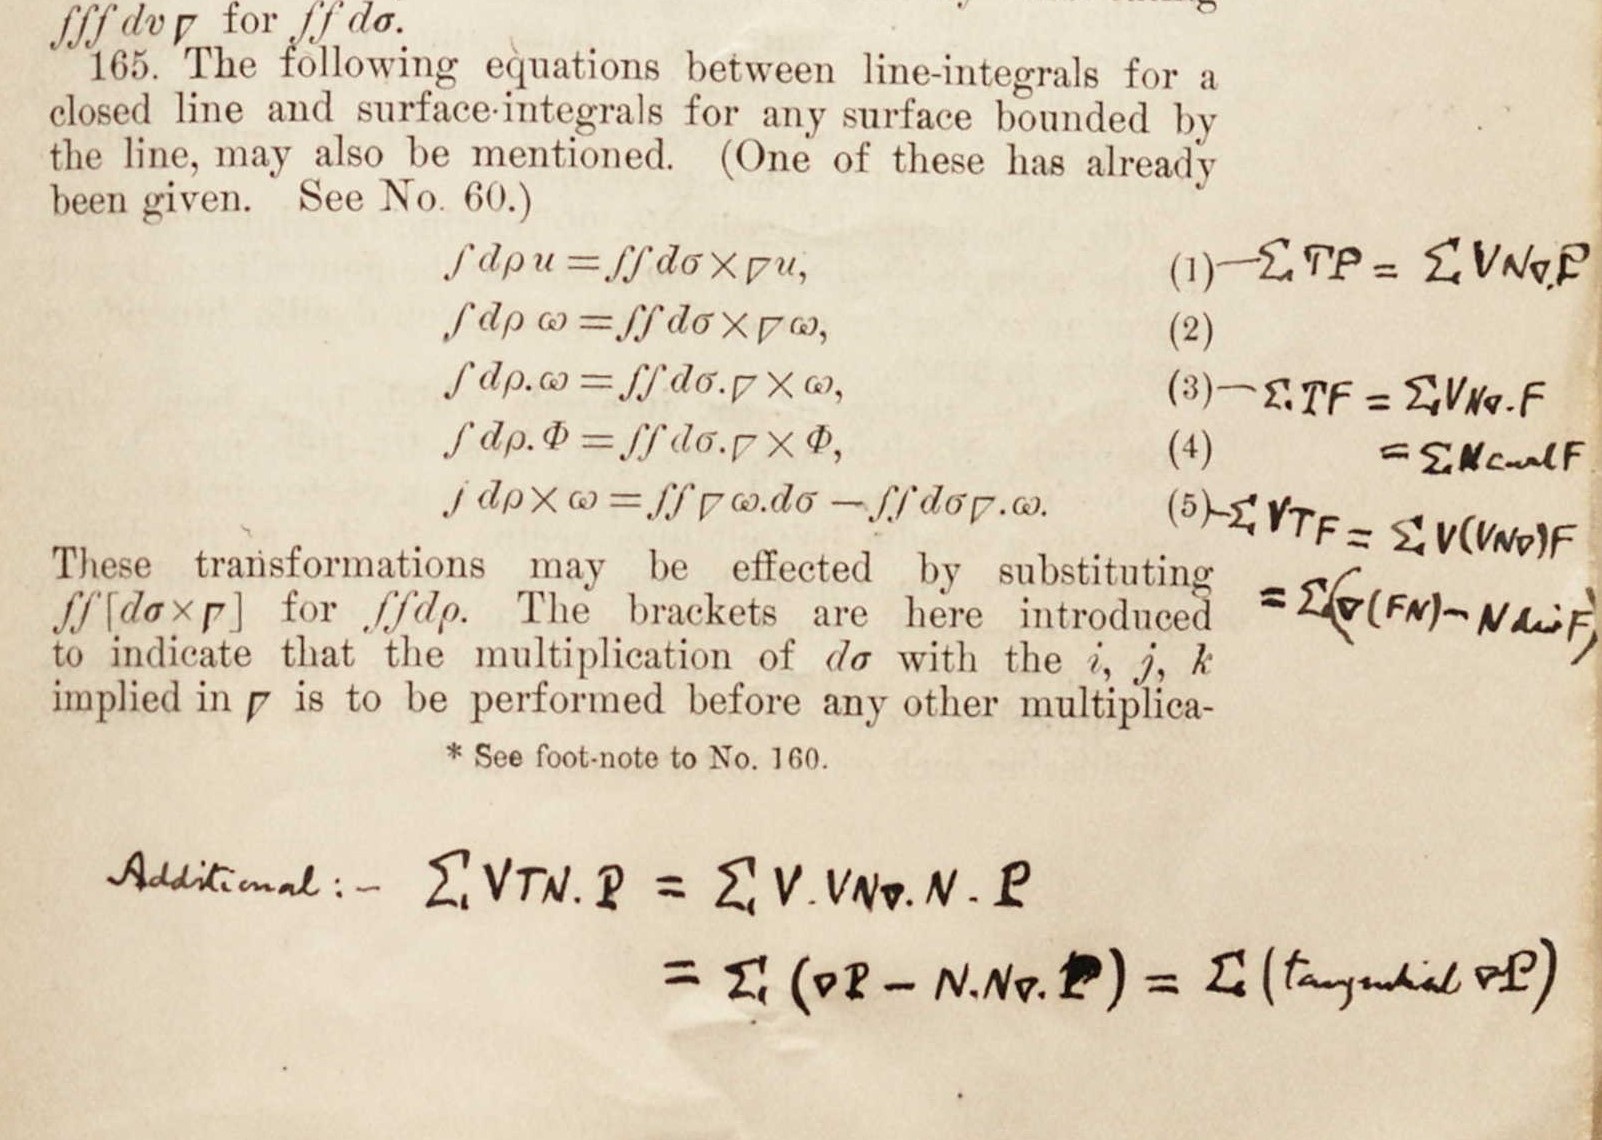 ∫∫∫ dv ∇ for ∫∫ dσ.
165. The following equations between line-integrals for a
closed line and surface-integrals for any surface bounded by
the line, may also be mentioned. (One of these has already
been given. See No. 60.)
∫ dρ u = ∫∫ dσ × ∇u, (1) — Σ TP = Σ VN∇.P
∫ dρ ω = ∫∫ dσ × ∇ω, (2)
∫ dρ.ω = ∫∫ dσ.∇ × ω, (3) — Σ TF = Σ VN∇.F
∫ dρ.Φ = ∫∫ dσ.∇ × Φ, (4) = Σ N curl F
∫ dρ × ω = ∫∫ ∇ω.dσ — ∫∫ dσ∇.ω. (5) — Σ VTF = Σ V(VN∇)F
These transformations may be effected by substituting
= Σ(∇(FN) − N div F)
∫∫ [dσ × ∇] for ∫∫ dρ. The brackets are here introduced
to indicate that the multiplication of dσ with the i, j, k
implied in ∇ is to be performed before any other multiplica-
* See foot-note to No. 160.
Additional :- Σ VTN. P = Σ V. VN∇. N. P
= Σ (∇P − N.N∇. P) = Σ (tangential ∇P)